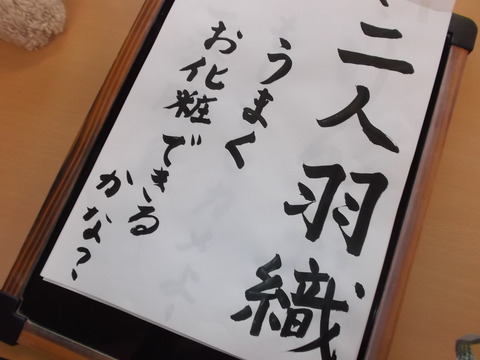 二人羽織
うまく
お化粧できる
かな?